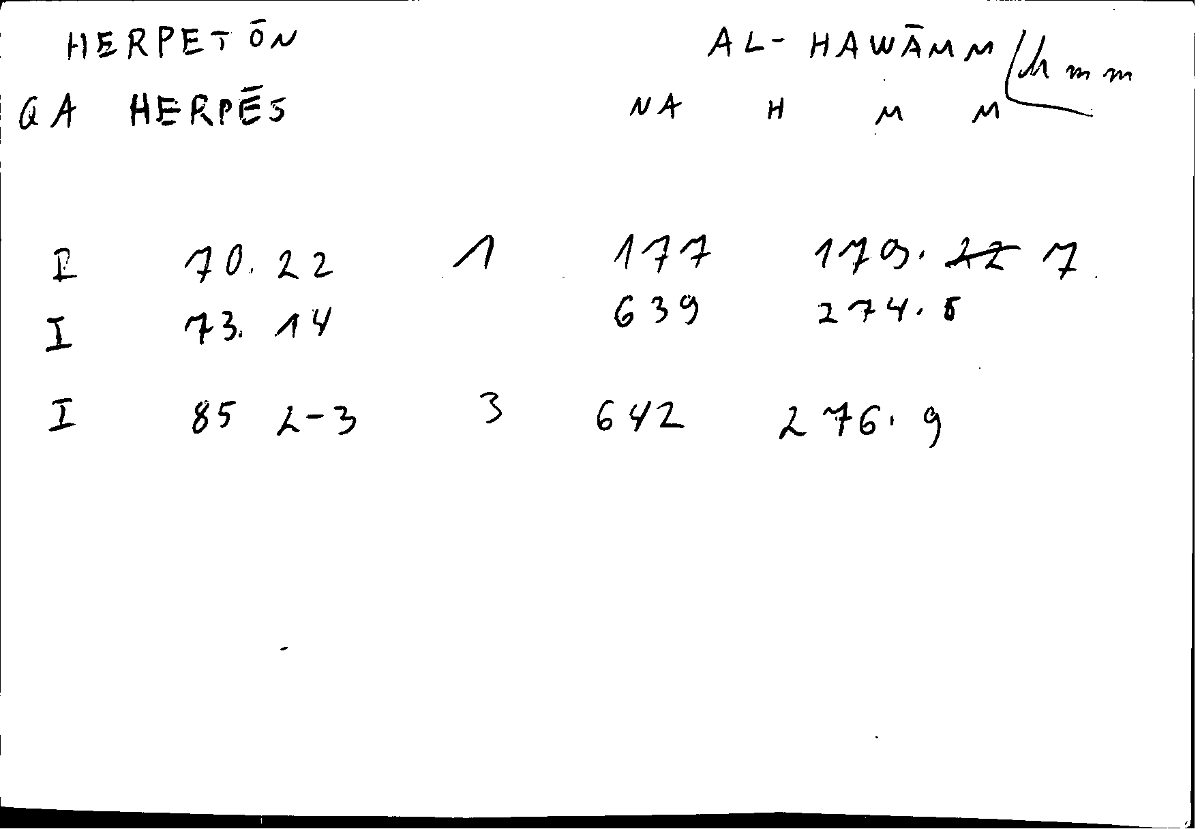 HERPETŌN AL-HAWĀMM hmm
GA HERPĒS NA H M M
I 70. 22 1 177 179. 22 7
I 73. 14 639 274. 5
I 85 2-3 3 642 276. 9